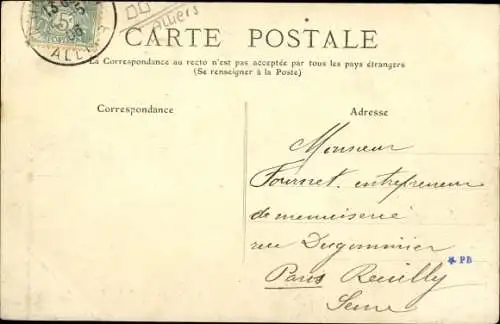 13
5
06
ALL
Alliers
CARTE POSTALE
La Correspondance au recto n'est pas acceptée par tous les pays étrangers
(Se renseigner à la Poste)
Correspondance
Adresse
Monsieur
Fournet. entrepreneur
de menuiserie
rue Dugommier
Paris Reuilly
Seine
* PB